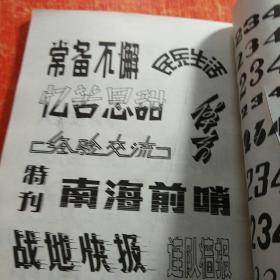 常备不懈
民乐生活
忆苦思甜
经验交流
特刊
南海前哨
战地快报
连队墙报
234
234
234
234